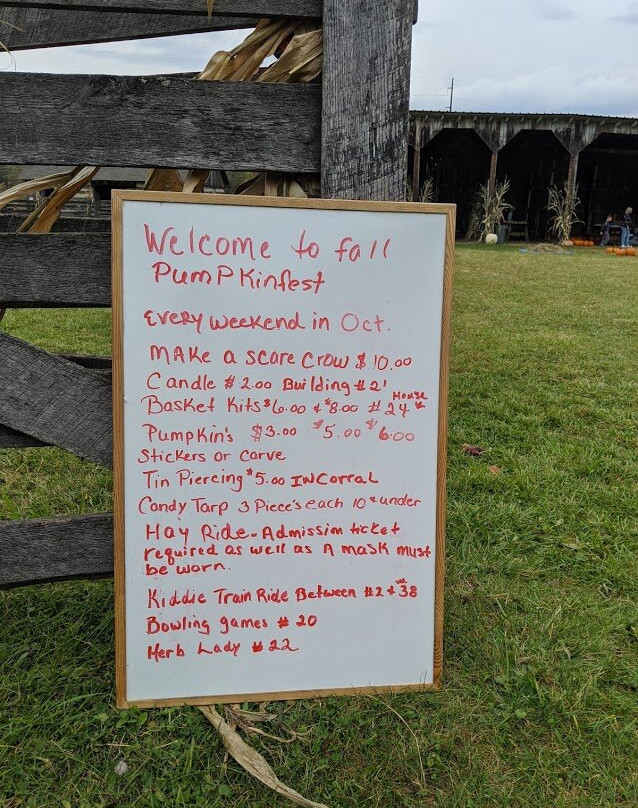 Welcome to fall
PumPKinfest
Every weekend in Oct.
MAKe a scare crow $10.00
Candle $2.00 Building #21
House
Basket Kits $6.00 + $8.00 #24
Pumpkin's $3.00 $5.00 $6.00
Stickers or carve
Tin Piercing $5.00 IN Corral
Candy Tarp 3 Piece's each 10 + under
Hay Ride - Admission ticket
required as well as A mask must
be worn.
Kiddie Train Ride Between #2 + 38
Bowling games #20
Herb Lady #22